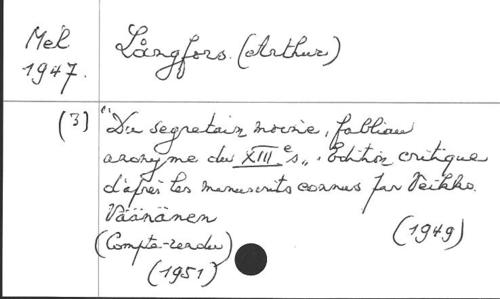 Mél
1947.
Långfors. (Arthur)
(3)
"Du segretain moine, fabliau
anonyme du XIII e s„. Edition critique
d'après les manuscrits connus par Veikko
Väänänen
(1949)
(Compte-rendu)
(1951)